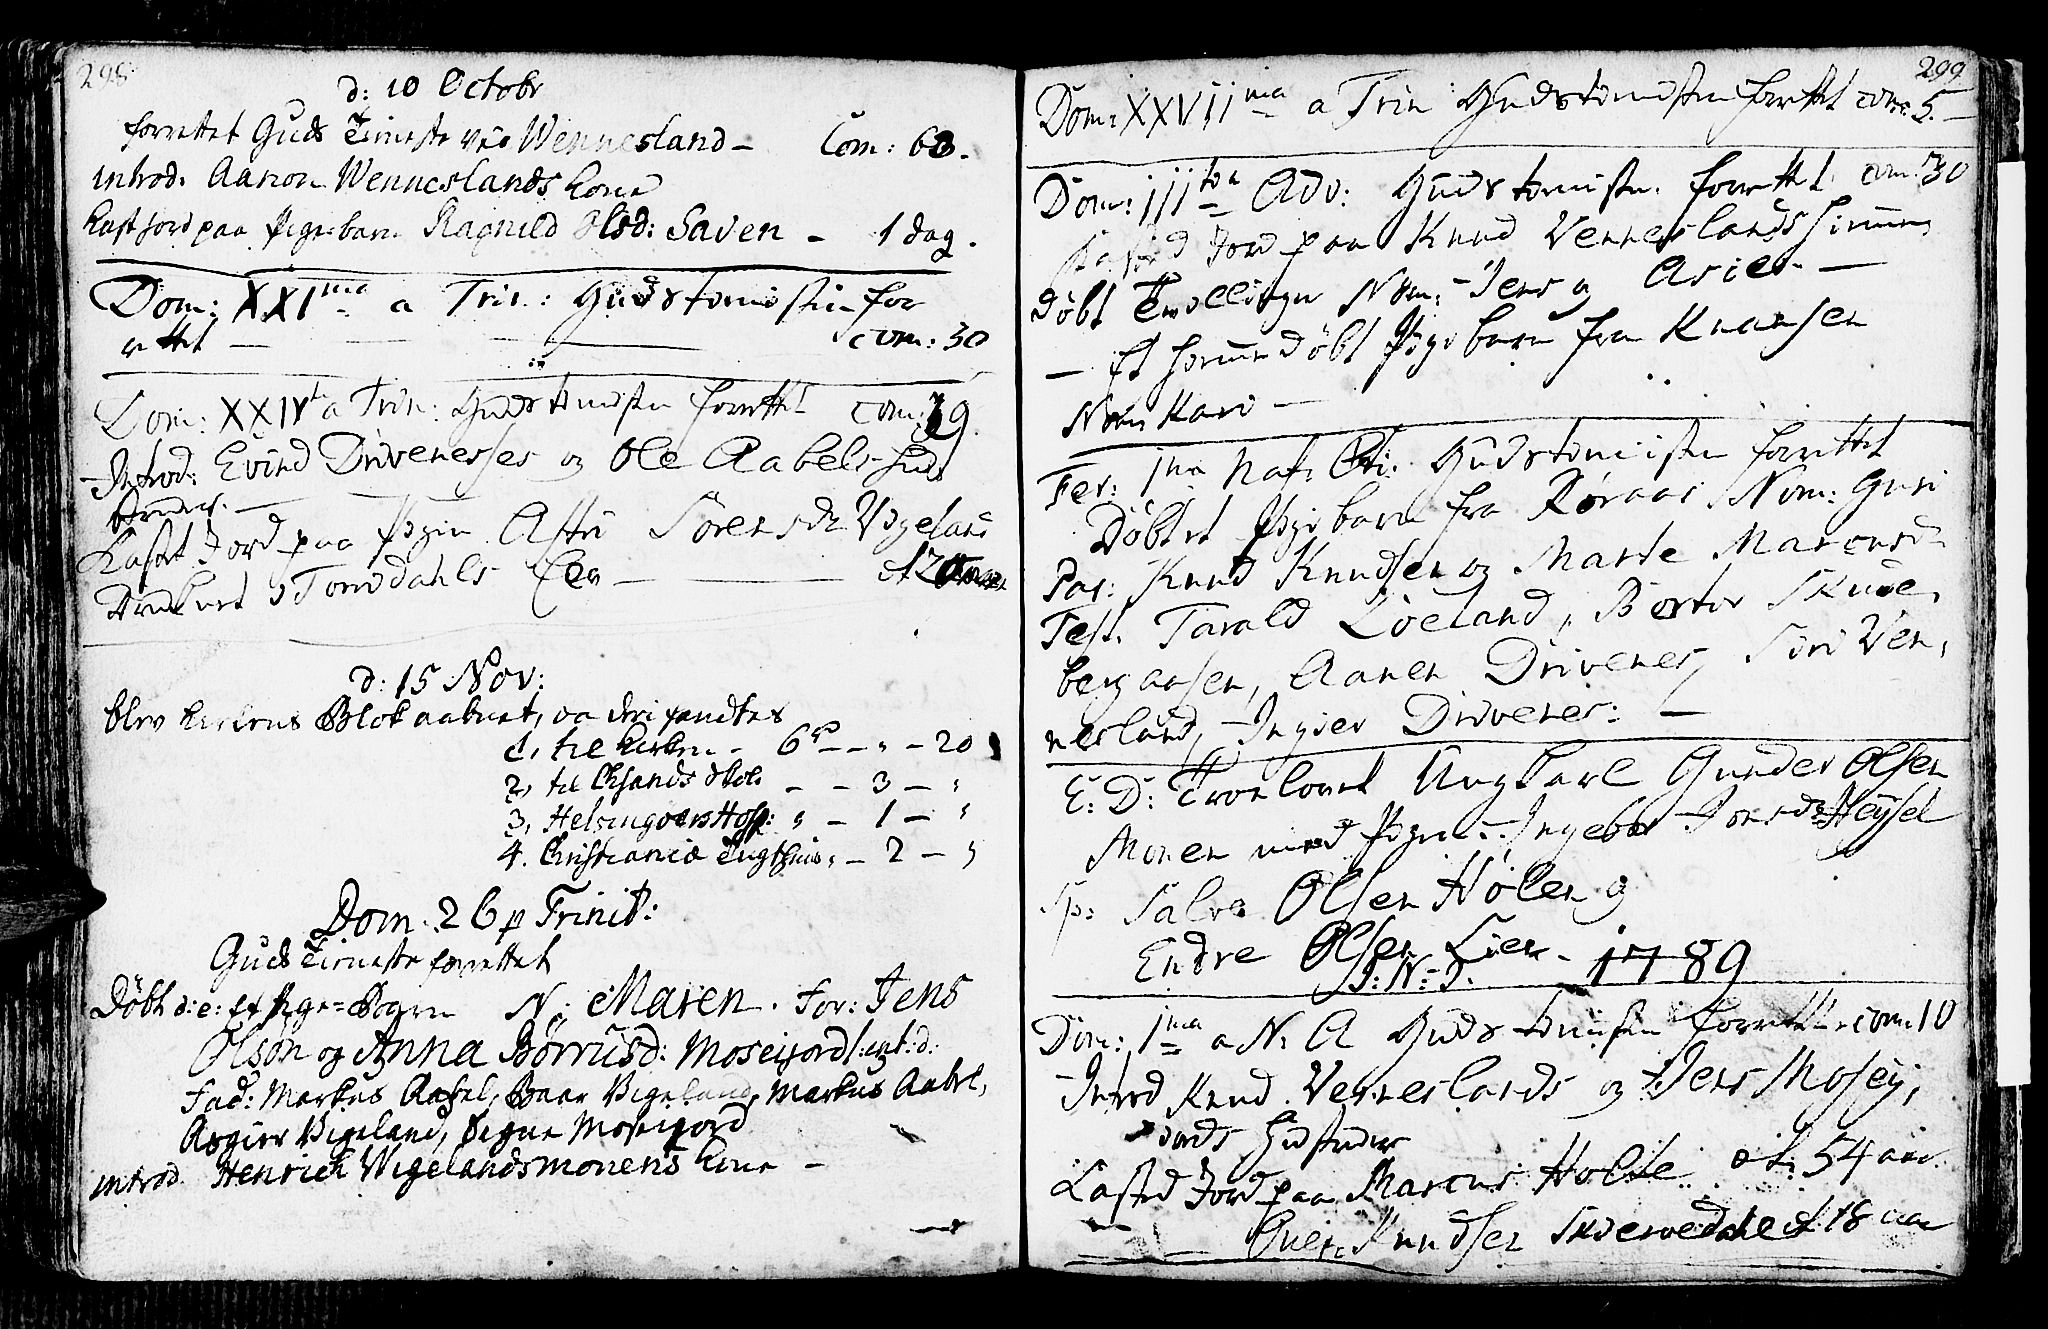 298
d: 10 Octobr
forrettet Guds Tieneste ved Wennesland – Com: 63.
introd: Aanon Wenneslands kone
kast Jord paa Pigebarn Ragnild Olsd: Saven – 1 dag.
Dom: XXI a Trin: Gudstienisten for
rettet — com: 30
Dom: XXIV a Trin: Gudstienisten forrettet com: 39.
Introd: Evind Drivenesses og Ole Aabels
Kastet Jord paa Pigen Astri Sørensdr Vigeland
Tordahls
d: 15 Nov:
blev kirkens Blok aabnet, og deri fandtes
1, til kirken – 6 – – „ – 20
2, til Chsands Skole – – 3 – „
3, Helsingøers Hosp: „ – 1 – „
4. Christiania Tugthuus „ – 2 – „
Dom. 26 p Trinit:
Guds Tieneste forrettet
Døbt d: e: et Pige-Barn N: Maren. For: Jens
Olsøn og Anna Børrusd: Moseifjord
Fad: Markus Aabel, Baar Vigeland, Markus Aabel,
Asgier Vigeland, Signe Moseifjord
introd. Henrich Wigelandsmonens kone –
299
Dom: XXVII a Trin: Gudstienisten forrettet com: 5. –
Dom: III Adv: Gudstienisten forrettet com: 30
Kasted Jord paa Knud Venneslands
Døbt Tvillinger Nom: Jens og —
– Et hiemmedøbt Pigebarn fra Knarsen
Nom Kari —
Fer: 1ma Nat: Chti: Gudstienisten forrettet
Døbt et Pigebarn fra Røraas Nom: Guri
Par: Knud Knudsen og Marte Marcusdr
Test. Tarald Løeland, Berte Skude,
bergaasen, Aanen Drivenes, Siri Ven,
nesland, Ingier Drivenes: —
E: D: Trolovet Ungkarl Gunder Olsen
Monen med Pigen Ingebor Jonsdr Heysel
Sp: Salve Olsen Hølen og
Endre Olsen Lien –
J: N: J. 1789
Dom: 1ma a N: A Gudstienisten forrettet com: 10
Introd Knud Venneslands og Jens Mosey,
iords Hustruer
Kasted Jord paa Marcus Holte æt: 54 aar.
— — Knudsen æt: 18 aar